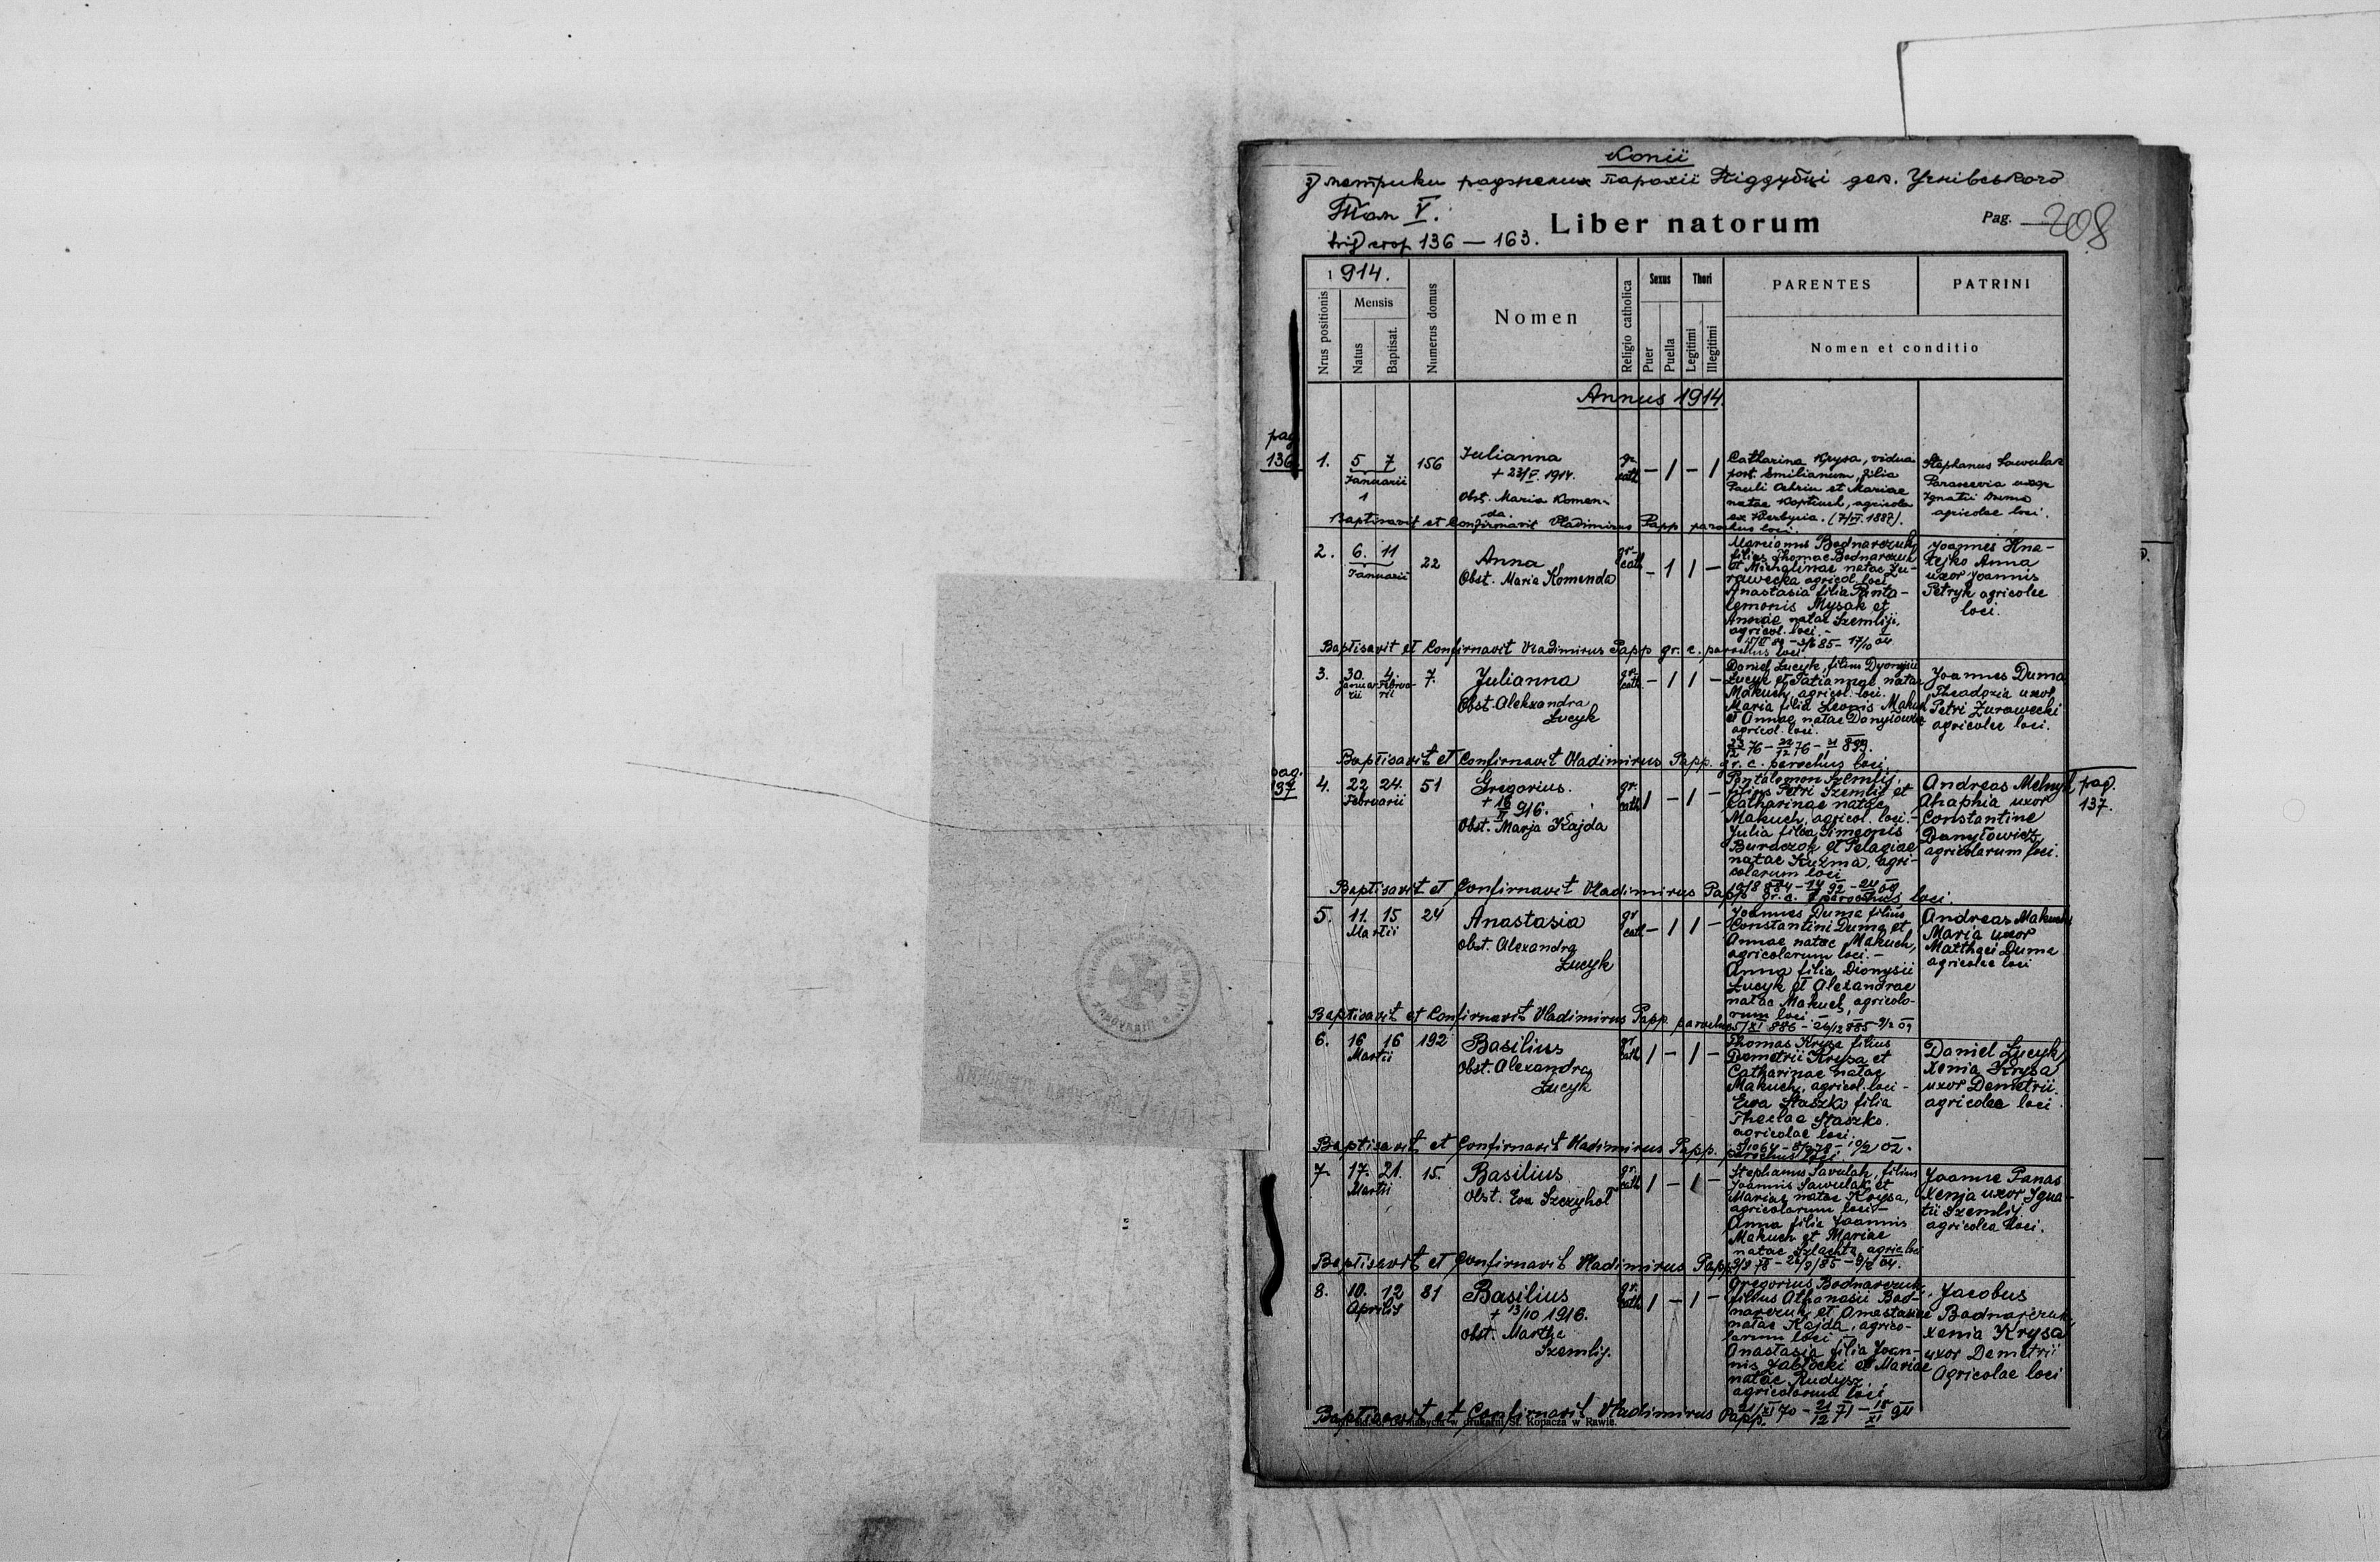 Копії
з метрики роджених парохії Піддубці дек. Угнівського
Том V.
від стор. 136 — 163.
Liber natorum
Pag. 208
1914.
Nrus positionis
Mensis
Natus
Baptisat.
Numerus domus
Nomen
Religio catholica
Sexus
Puer
Puella
Thori
Legitimi
Illegitimi
PARENTES
PATRINI
Nomen et conditio
Annus 1914.
pag.
136
1. 5 7 Januarii 156
Julianna
Obst. Maria Komenda.
gr. cath. – 1 – 1
Catharina Krysa, vidua
post Emilianum, filia
Pauli et Mariae
natae agricola
ex
Stephanus Sawulak
Parascevia uxor
Ignatii Duma
agricolae loci.
Baptisavit et Confirmavit Vladimirus Papp parochus loci.
2. 6. 11 Januarii 22
Anna
Obst. Maria Komenda
gr. cath. – 1 1 –
Marcianus Bodnarczuk,
filius Thomae Bodnarczuk
et Michalinae natae Żu-
rawecka agricol. loci
Anastasia filia Panta-
lemonis Mysak et
Annae natae Szemlij,
agricol. loci. –
Joannes Hna-
tejko Anna
uxor Joannis
Petryk agricolae
loci.
Baptisavit et Confirmavit Vladimirus Papp gr. c. parochus loci
3. 30. Januarii 4. Februarii 7.
Julianna
Obst. Aleksandra
Łucyk
gr. cath. – 1 1 –
Daniel Łucyk, filius Dyonysii
Łucyk et Tatiannae natae
Makuch, agricol. loci.
Maria filia Leonis Makuch
et Annae natae Danyłowicz
agricol. loci.
Joannes Duma
Theodozia uxor
Petri Żurawecki
agricolae loci.
Baptisavit et Confirmavit Vladimirus Papp. gr. c. parochus loci.
pag.
137
4. 22 24. Februarii 51
Gregorius.
+ 16/II 916.
Obst. Marja Kajda
gr. cath. 1 – 1 –
Pantalemon Szemlij,
filius Petri Szemlij et
Catharinae natae
Makuch, agricol. loci. –
Julia filia Simeonis
Buraczok et Pelagiae
natae Kuzma, agri-
colarum loci
Andreas Melnyk
Ahaphia uxor
Constantine
Danyłowicz,
agricolarum loci.
pag.
137.
Baptisavit et Confirmavit Vladimirus Papp gr. c. parochus loci.
5. 11. 15 Martii 24
Anastasia
Obst. Alexandra
Łucyk
gr. cath. – 1 1 –
Joannes Duma filius
Constantini Duma et
Annae natae Makuch,
agricolarum loci. –
Anna filia Dionysii
Łucyk et Alexandrae
natae Makuch, agricola-
rum loci
Andreas Makuch
Maria uxor
Matthaei Duma
agricolae loci
Baptisavit et Confirmavit Vladimirus Papp parochus
6. 16 16 Martii 192
Basilius
Obst. Alexandra
Łucyk
gr. cath. 1 – 1 –
Thomas Krysa filius
Demetrii Krysa et
Catharinae natae
Makuch, agricol. loci –
Ewa Staszko filia
Theclae Staszko.
agricolae loci.
Daniel Łucyk
Xenia Krysa
uxor Demetrii
agricolae loci.
Baptisavit et Confirmavit Vladimirus Papp. parochus loci.
7. 17. 21. Martii 15.
Basilius
Obst. Eva Szczyhoł
gr. cath. 1 – 1 –
Stephanus Sawulak, filius
Joannis Sawulak et
Mariae natae Krysa,
agricolarum loci –
Anna filia Joannis
Makuch et Mariae
natae Szlachta, agric. loci
Joanne Panas
Xenja uxor Igna-
tii Szemlij
agricolae loci.
Baptisavit et Confirmavit Vladimirus Papp.
8. 10. 12 Aprilis 81
Basilius
+ 13/10 1916.
Obst. Martha
Szemlij.
gr. cath. 1 – 1 –
Gregorius Bodnarczuk,
filius Athanasii Bod-
narczuk et Anastasiae
natae Kajda, agrico-
larum loci –
Anastasia filia Joan-
nis Jabłocki et Mariae
natae Rudysz,
agricolarum loci
21/XI 70 – 21/12 71 – 15/XI 911
Jacobus
Bodnarczuk
Xenia Krysa
uxor Demetrii
Agricolae loci
Baptisavit et Confirmavit Vladimirus Papp.
w drukarni St. Kopacza w Rawie.